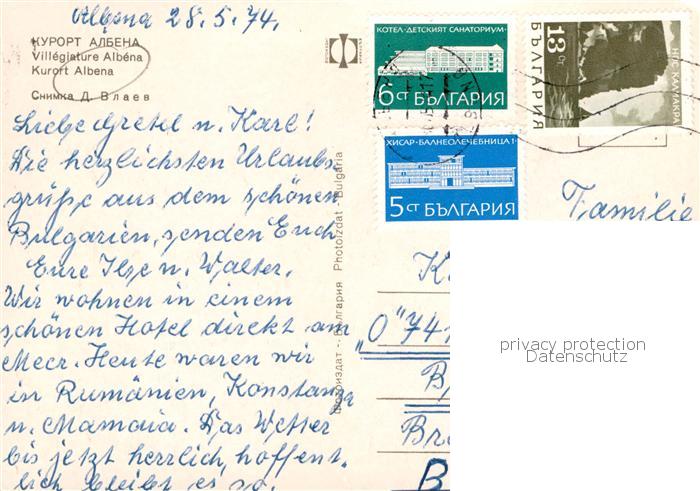 Albena 28.5.74.
КУРОРТ АЛБЕНА
Villégiature Albéna
Kurort Albena
Снимка Д. Влаев
Liebe Gretel u. Karl!
Die herzlichsten Urlaubs-
grüße aus dem schönen
Bulgarien, senden Euch
Eure Ilse u. Walter.
Wir wohnen in einem
schönen Hotel direkt am
Meer. Heute waren wir
in Rumänien, Konstanza
u. Mamaia. Das Wetter
bis jetzt herrlich, hoffent-
lich bleibt es so.
Фотоиздат - България Photoizdat - Bulgaria
КОТЕЛ-ДЕТСКИЯТ САНАТОРИУМ
6 СТ БЪЛГАРИЯ
13 СТ
БЪЛГАРИЯ
НОС КАЛИАКРА
ХИСАР-БАЛНЕОЛЕЧЕБНИЦА
5 СТ БЪЛГАРИЯ
Familie
K
"O" 741
B
Br
B
privacy protection
Datenschutz